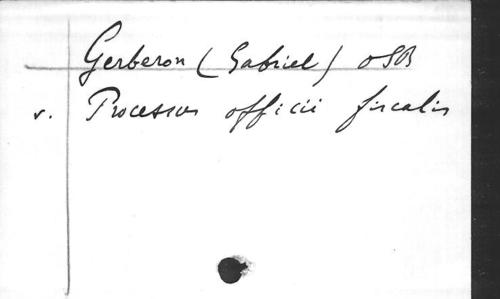 Gerberon (Gabriel) OSB
v. Processus officii fiscalis